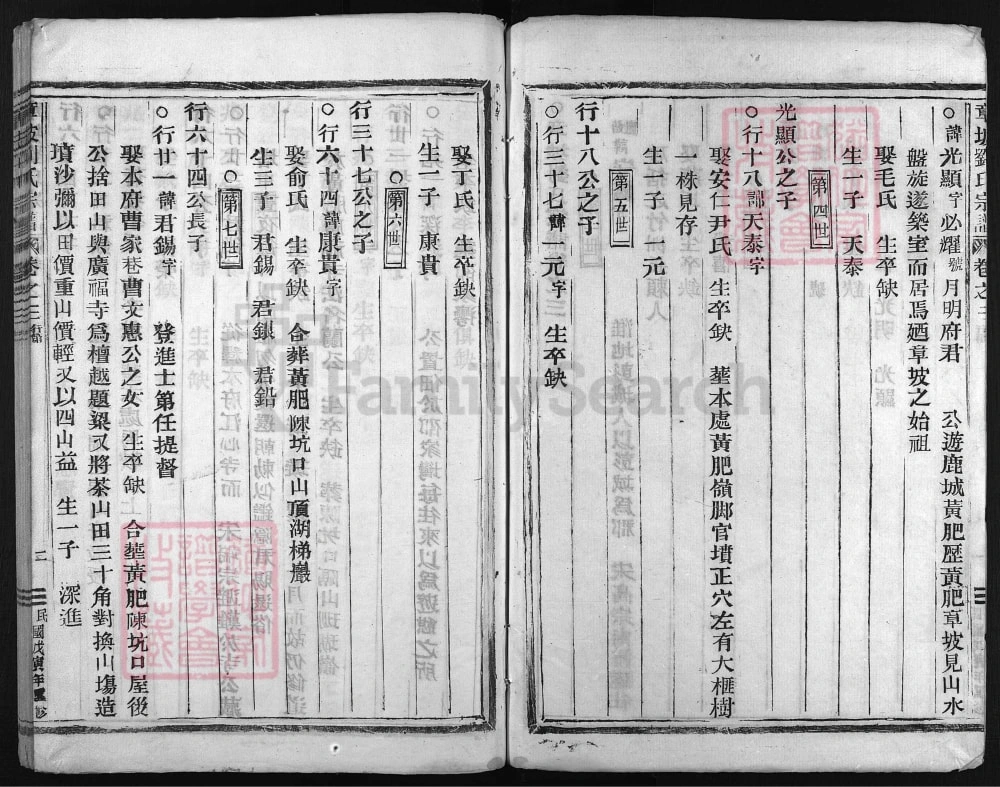 ○諱光顯字必耀號月明府君 公遊鹿城黃肥歷黃肥章坡見山水
盤旋遂築室而居焉廼章坡之始祖
娶毛氏 生卒缺
生一子 天泰
第四世
光顯公之子
○行十八諱天泰字
娶安仁尹氏 生卒缺 塟本處黃肥嶺脚官墳正穴左有大榧樹
一株見存
生一子 一元
第五世
行十八公之子
○行三十七諱一元字 生卒缺
娶丁氏 生卒缺
生一子 康貴
○第六世
行三十七公之子
○行六十四諱康貴字
娶俞氏 生卒缺 合葬黃肥陳坑口山頂湖梯巖
生三子 君錫 君銀 君鉛
○第七世
行六十四公長子
○行廿一諱君錫字 登進士第任提督
娶本府曹家巷曹文惠公之女 生卒缺 合塟黃肥陳坑口屋後
公捨田山與廣福寺爲檀越題梁又將茶山田三十角對換山塲造
墳沙彌以田價重山價輕又以四山益 生一子 深進
民國戊寅年重修
FamilySearch